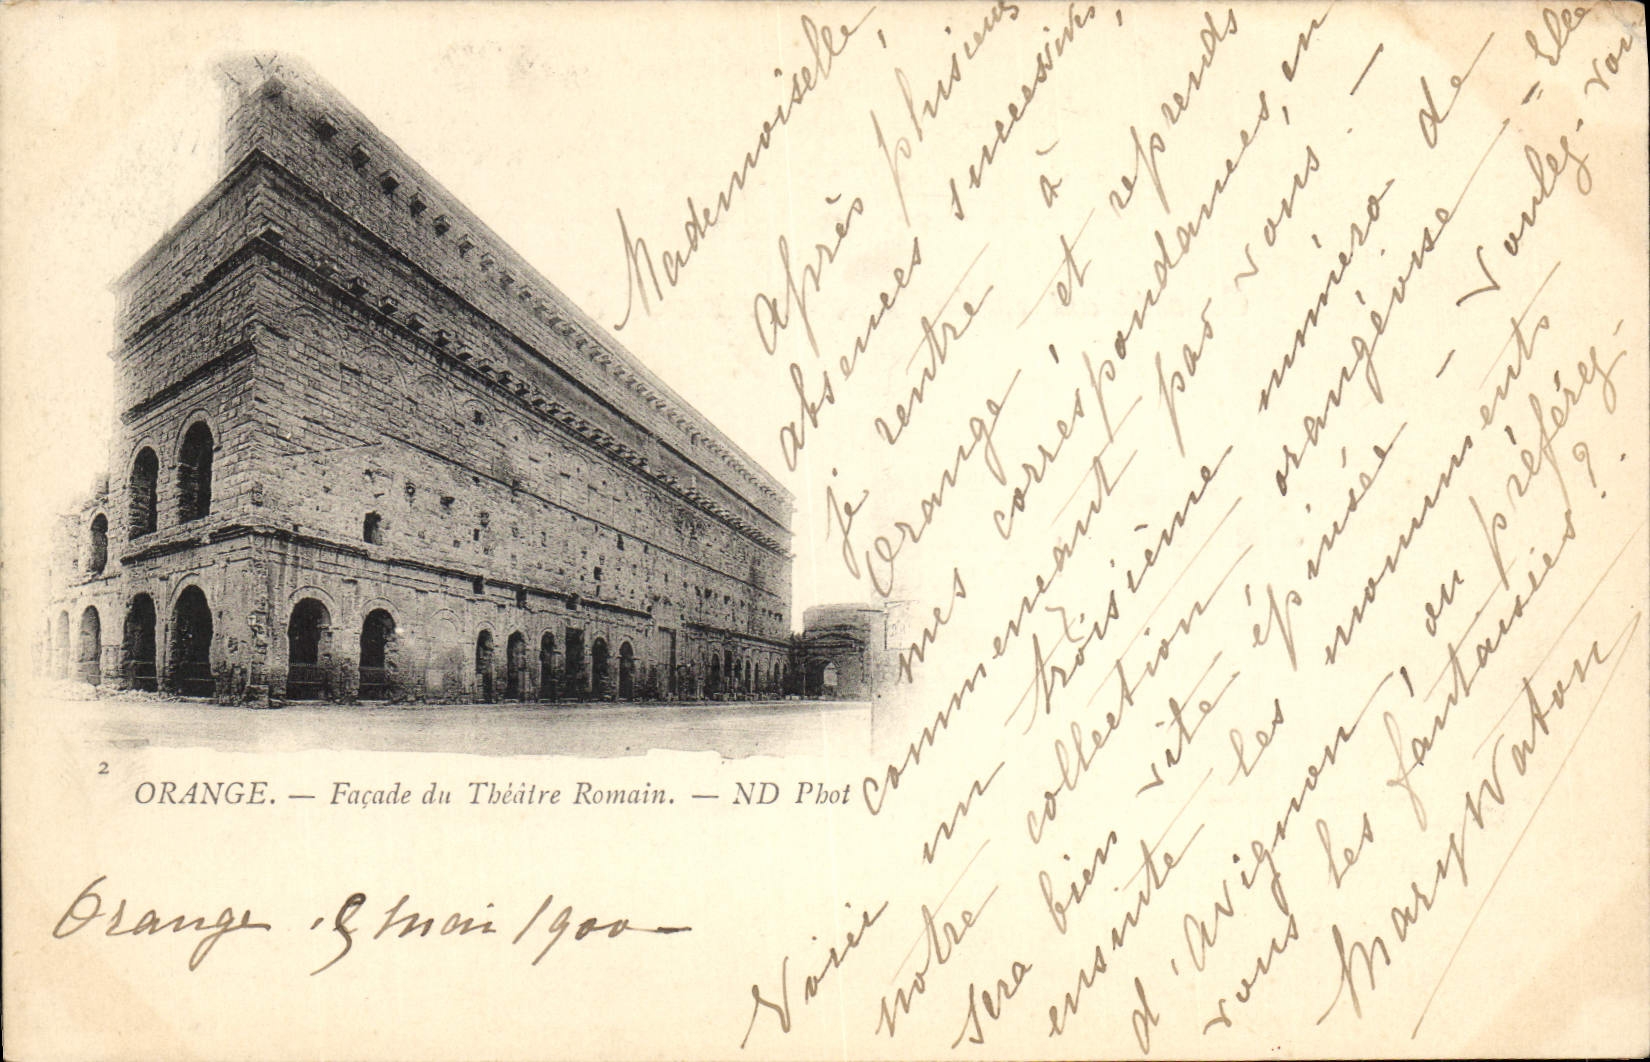 Mademoiselle,
Après plusieurs
absences successives,
je rentre à
Orange et reprends
mes correspondances, en
commençant par vous. —
Voici un troisième numéro de
notre collection orangéoise — Elle
sera bien vite épuisée — Voulez-vous
ensuite les monuments
d'Avignon, ou préférez-
vous les fantaisies?
Mary Waton
2
ORANGE. — Façade du Théâtre Romain. — ND Phot
Orange mai 1900 —